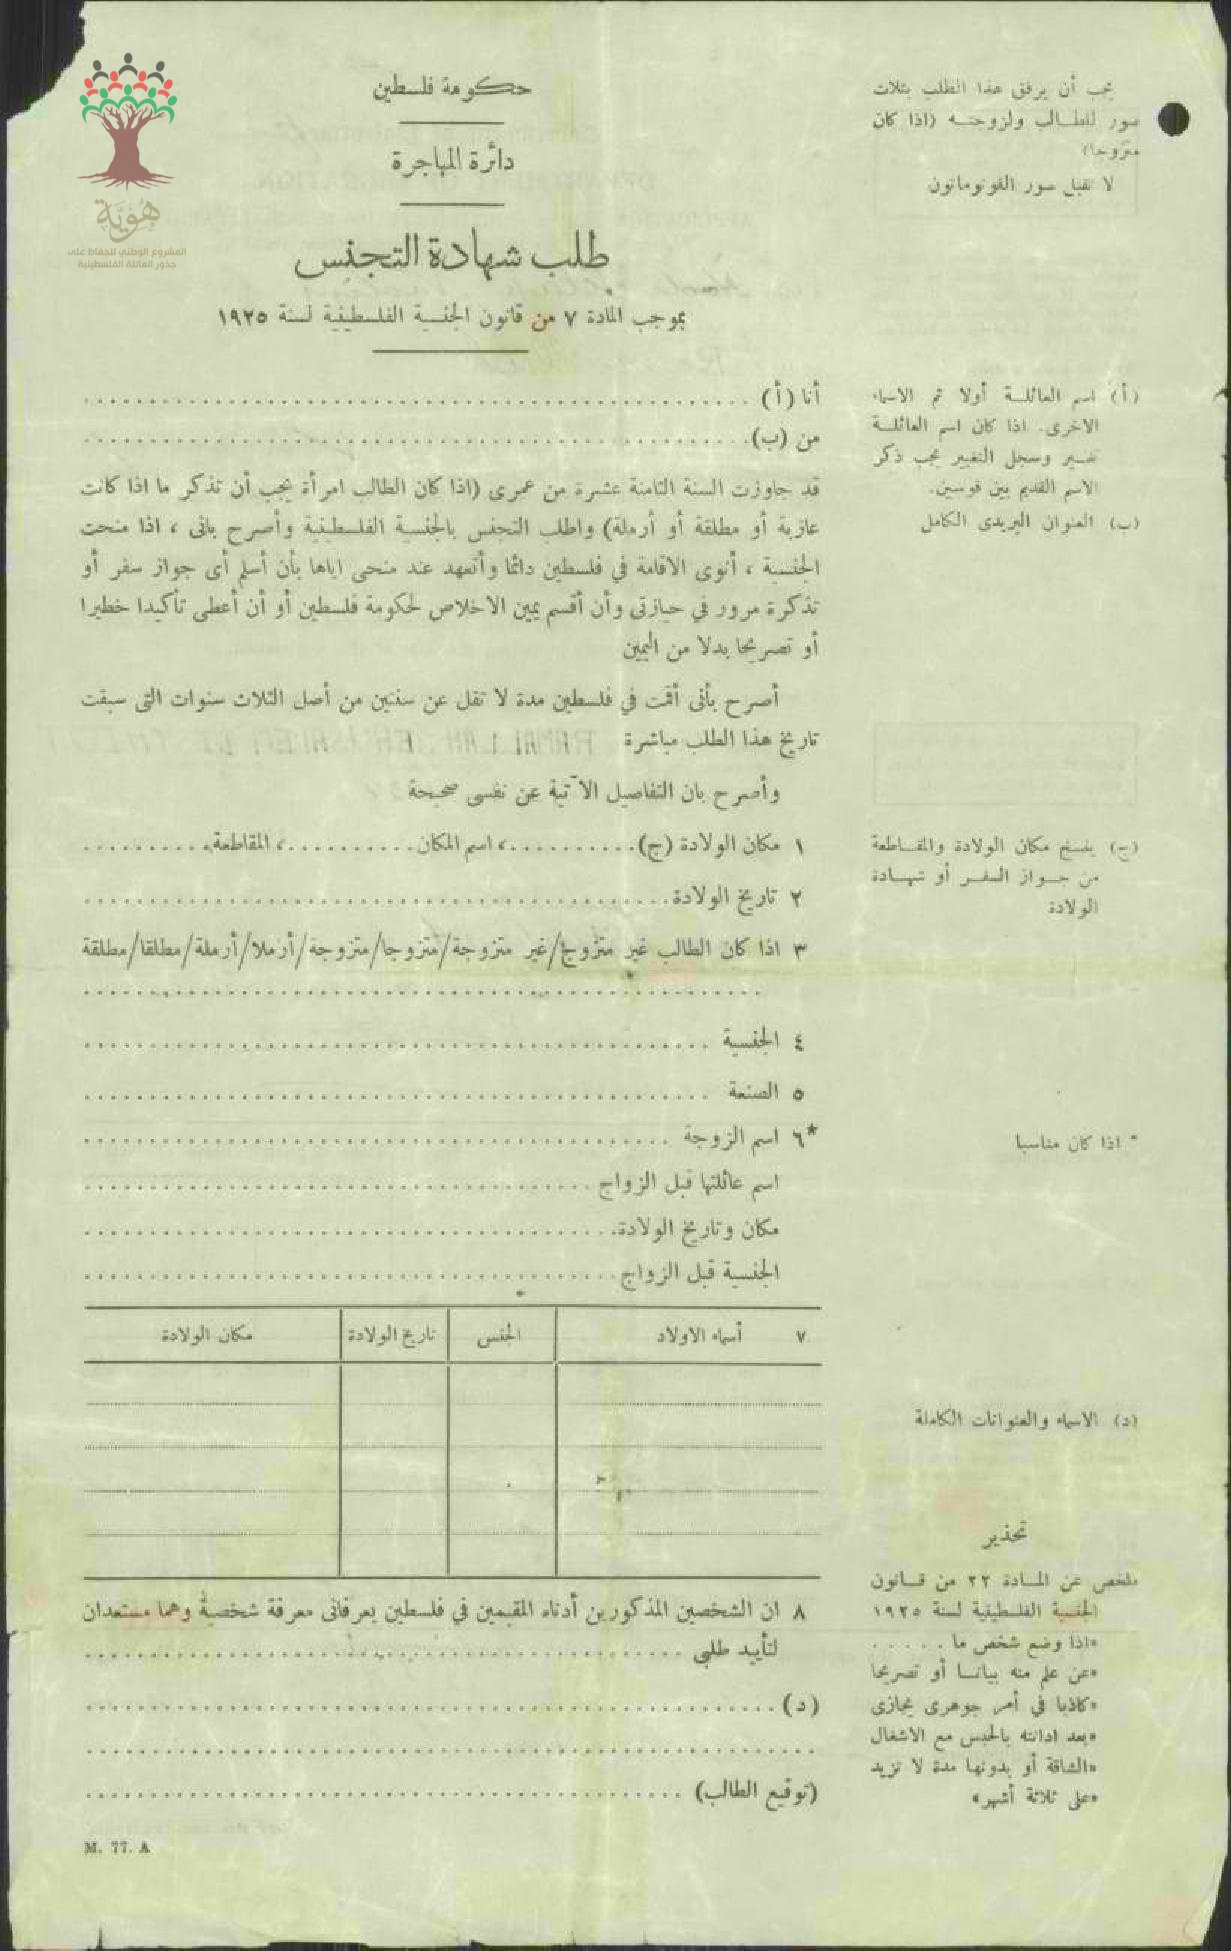 هُوِيَّة
المشروع الوطني للحفاظ على
جذور العائلة الفلسطينية
حكومة فلسطين
دائرة المهاجرة
طلب شهادة التجنيس
بموجب المادة ٧ من قانون الجنسية الفلسطينية لسنة ١٩٢٥
يجب أن يرفق هذا الطلب بثلاث
صور للطالب ولزوجته (اذا كان
متزوجا)
لا تقبل صور الفوتوماتون
أنا (أ)
من (ب)
قد جاوزت السنة الثامنة عشرة من عمرى (اذا كان الطالب امرأة يجب أن تذكر ما اذا كانت
عازبة أو مطلقة أو أرملة) واطلب التجنس بالجنسية الفلسطينية وأصرح بانى ، اذا منحت
الجنسية ، أنوى الاقامة في فلسطين دائما وأتعهد عند منحى اياها بأن أسلم أى جواز سفر أو
تذكرة مرور في حيازتى وأن أقسم يمين الاخلاص لحكومة فلسطين أو أن أعطى تأكيدا خطيرا
أو تصريحا بدلا من اليمين
أصرح بأنى أقمت في فلسطين مدة لا تقل عن سنتين من أصل الثلاث سنوات التى سبقت
تاريخ هذا الطلب مباشرة
وأصرح بان التفاصيل الآتية عن نفسى صحيحة
١ مكان الولادة (ج)..........، اسم المكان..........، المقاطعة..........
٢ تاريخ الولادة
٣ اذا كان الطالب غير متزوج/غير متزوجة/متزوجا/متزوجة/أرملا/أرملة/مطلقا/مطلقة
٤ الجنسية
٥ الصنعة
*٦ اسم الزوجة
اسم عائلتها قبل الزواج
مكان وتاريخ الولادة
الجنسية قبل الزواج
٧ أسماء الاولاد الجنس تاريخ الولادة مكان الولادة
٨ ان الشخصين المذكورين أدناه المقيمين في فلسطين يعرفانى معرفة شخصية وهما مستعدان
لتأييد طلبي
(د)
(توقيع الطالب)
M. 77. A
(أ) اسم العائلة أولا ثم الاسماء
الاخرى. اذا كان اسم العائلة
تغير وسجل التغيير يجب ذكر
الاسم القديم بين قوسين.
(ب) العنوان البريدى الكامل
(ج) ينسخ مكان الولادة والمقاطعة
من جواز السفر أو شهادة
الولادة
* اذا كان مناسبا
(د) الاسماء والعنوانات الكاملة
تحذير
ملخص عن المادة ٢٢ من قانون
الجنسية الفلسطينية لسنة ١٩٢٥
«اذا وضع شخص ما .....
«عن علم منه بيانا أو تصريحا
«كاذبا في أمر جوهرى يجازى
«بعد ادانته بالحبس مع الاشغال
«الشاقة أو بدونها مدة لا تزيد
«على ثلاثة أشهر»